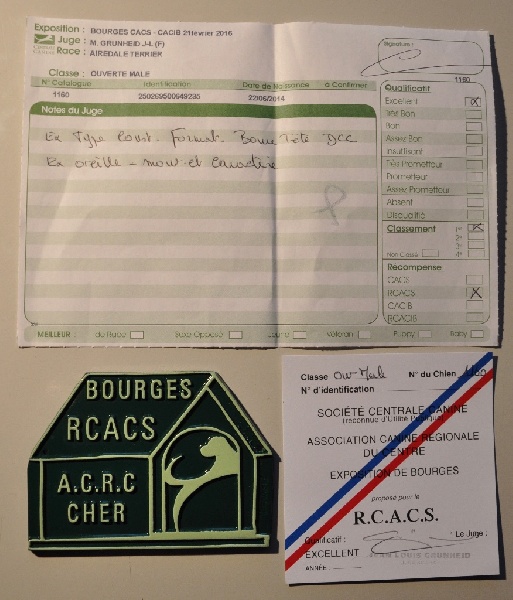 Exposition : BOURGES CACS - CACIB 21février 2016
Juge : M. GRUNHEID J-L (F)
Race : AIREDALE TERRIER
Signature :
Classe : OUVERTE MALE
N° Catalogue Identification Date de Naissance à Confirmer
1160
1160 22/06/2014
Notes du Juge
Ex Type Const. Format Bonne Tête
Ex oreille - mort et caractère
Qualificatif
Excellent X
Très Bon
Bon
Assez Bon
Insuffisant
Très Prometteur
Prometteur
Assez Prometteur
Absent
Disqualifié
Classement
Non Classé
Récompense
CACS
RCACS X
CACIB
RCACIB
MEILLEUR : de Race Sexe Opposé Jeune Vétéran Puppy Baby
BOURGES
RCACS
A.C.R.C
CHER
Classe Ouv Male N° du Chien 1160
N° d'identification
SOCIÉTÉ CENTRALE CANINE
(reconnue d'Utilité Publique)
ASSOCIATION CANINE RÉGIONALE
DU CENTRE
EXPOSITION DE BOURGES
propose pour le
R.C.A.C.S.
Qualificatif : Le Juge :
EXCELLENT JEAN LOUIS GRUNHEID
ANNÉE :